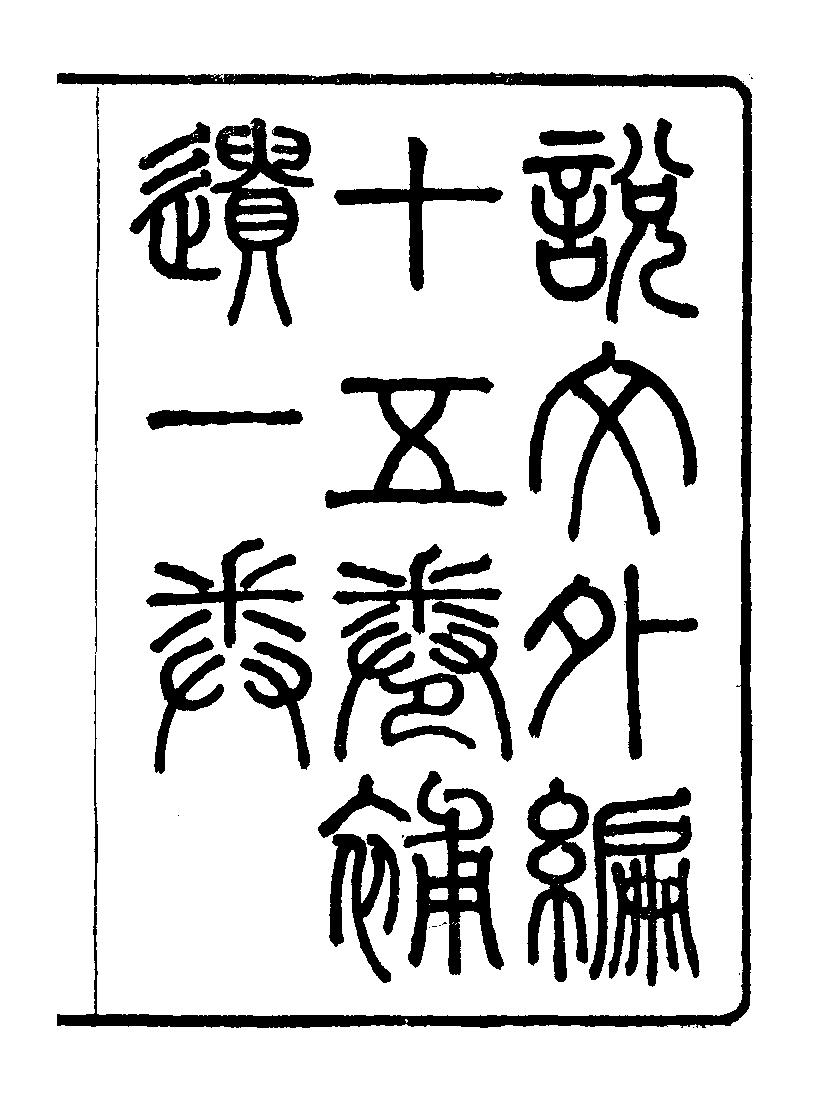 說文外編
十五卷補
遺一𢍏